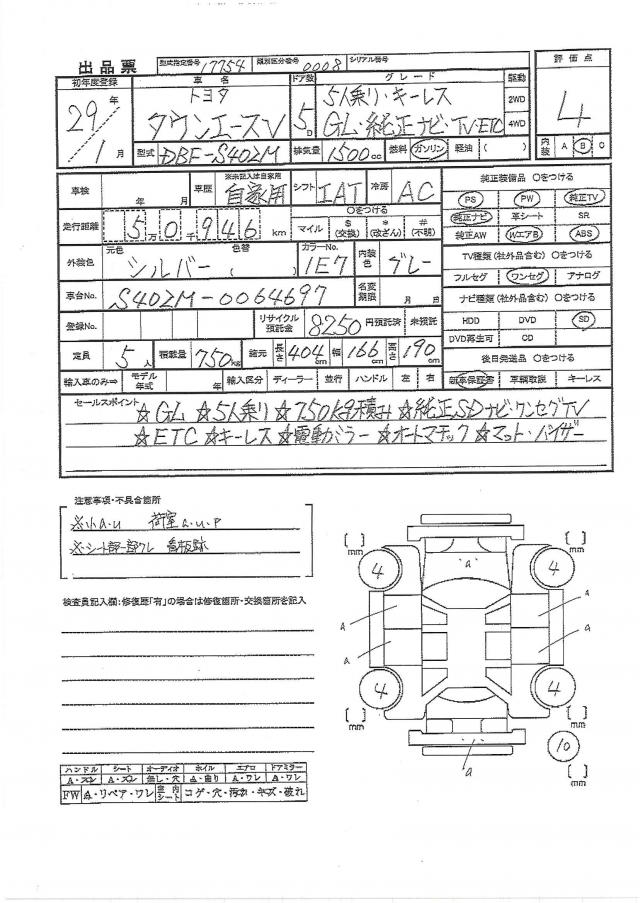 出品票 型式指定番号 17754 類別区分番号 0008 シリアル番号
初年度登録 車名 ドア数 グレード 駆動 評価点
29年 1月 トヨタ タウンエースV 5D 5人乗り・キーレス 2WD 4
GL・純正ナビ・TV・ETC 4WD
型式 DBF-S402M 排気量 1500cc 燃料 ガソリン 軽油 ( ) 内装 A B C
車検 年 月 車歴 ※未記入は自家用 自家用 シフト IAT 冷房 AC 純正装備品 〇をつける
PS PW 純正TV
走行距離 5万0千946km 〇をつける マイル $ (交換) * (改ざん) # (不明) 純正ナビ 革シート SR
純正AW WエアB ABS
外装色 元色 シルバー 色替 ( ) カラーNo. 1E7 内装色 グレー TV種類(社外品含む)〇をつける
フルセグ ワンセグ アナログ
車台No. S402M-0064697 名変期限 月 日 ナビ種類(社外品含む)〇をつける
登録No. リサイクル預託金 8250円預託済 未預託 HDD DVD SD
DVD再生可 CD
定員 5人 積載量 750kg 諸元 長さ 404cm 幅 166cm 高さ 190cm 後日発送品 〇をつける
輸入車のみ⇒ モデル年式 年 輸入区分 ディーラー 並行 ハンドル 左 右 新車保証書 車輌取説 キーレス
セールスポイント ☆GL ☆5人乗り ☆750kg積み ☆純正SDナビ・ワンセグTV
☆ETC ☆キーレス ☆電動ミラー ☆オートマチック ☆マット・バイザー
注意事項・不具合箇所
※小A・U 荷室A・U・P
※シート部一部ワレ 看板跡
検査員記入欄:修復歴「有」の場合は修復箇所・交換箇所を記入
[ ] mm [ ] mm
4 a 4
a a
a a
4 4
[ ] mm [ ] mm
a 10
[ ] mm
ハンドル シート オーディオ ホイル エアロ ドアミラー
A・スレ A・スレ 無し・穴 A・曲り A・ワレ A・ワレ
FW A・リペア・ワレ 室内シート コゲ・穴・汚れ・キズ・破れ